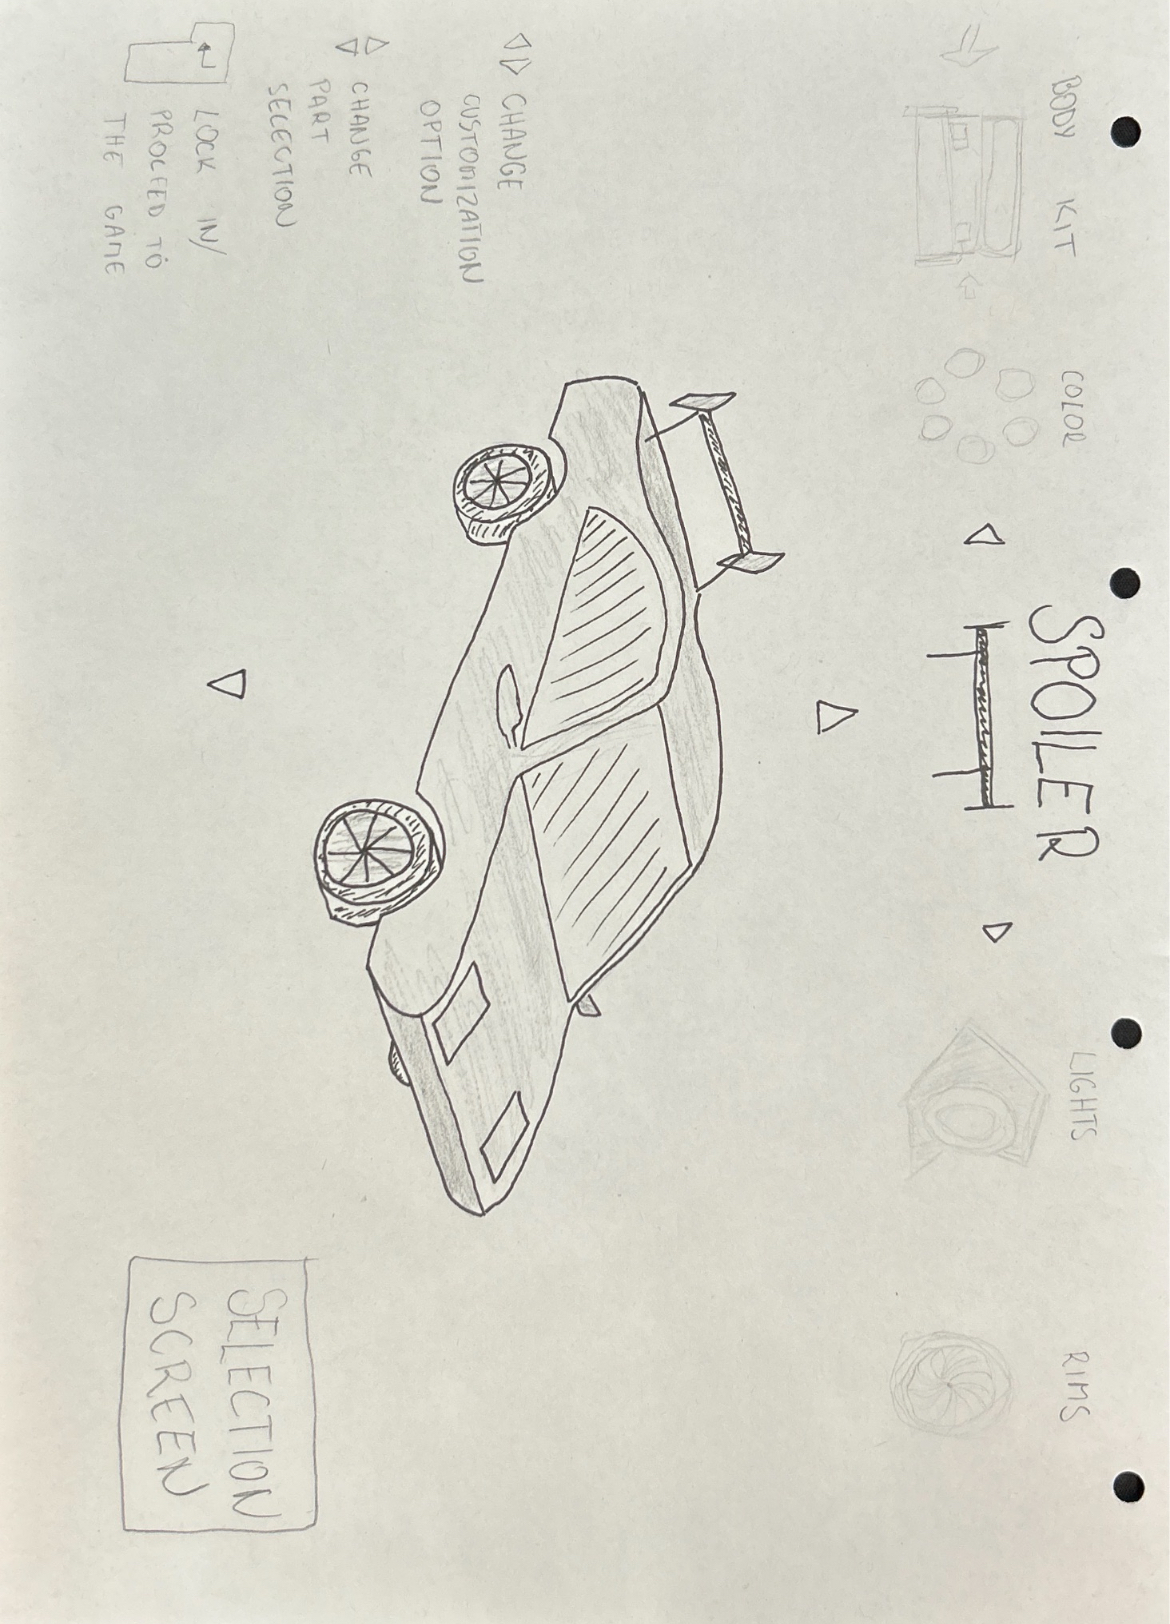 BODY KIT
COLOR
SPOILER
LIGHTS
RIMS
CHANGE
CUSTOMIZATION
OPTION
CHANGE
PART
SELECTION
LOCK IN/
PROCEED TO
THE GAME
SELECTION
SCREEN